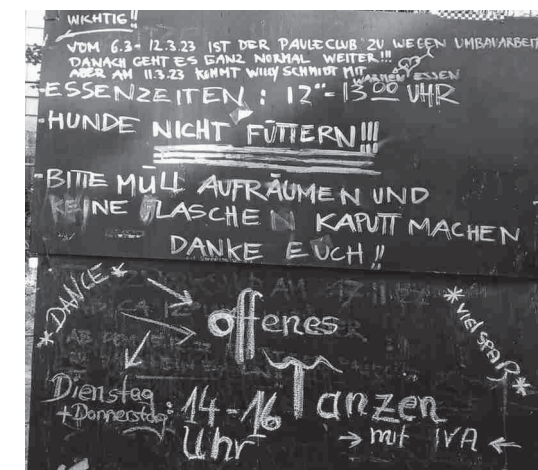 WICHTIG!!
VOM 6.3.- 12.3.23 IST DER PAULECLUB ZU WEGEN UMBAUARBEIT
DANACH GEHT ES GANZ NORMAL WEITER!!!
ABER AM 11.3.23 KOMMT WILLY SCHMIDT MIT WARMEN ESSEN
-ESSENZEITEN : 12°°-13⁰⁰ UHR
-HUNDE NICHT FÜTTERN!!!
-BITTE MÜLL AUFRÄUMEN UND
KEINE FLASCHEN KAPUTT MACHEN
DANKE EUCH!!
*DANCE*
offenes
Tanzen
*VIEL SPAẞ*
Dienstag
+Donnerstag: 14-16
Uhr
→ mit IVA ←